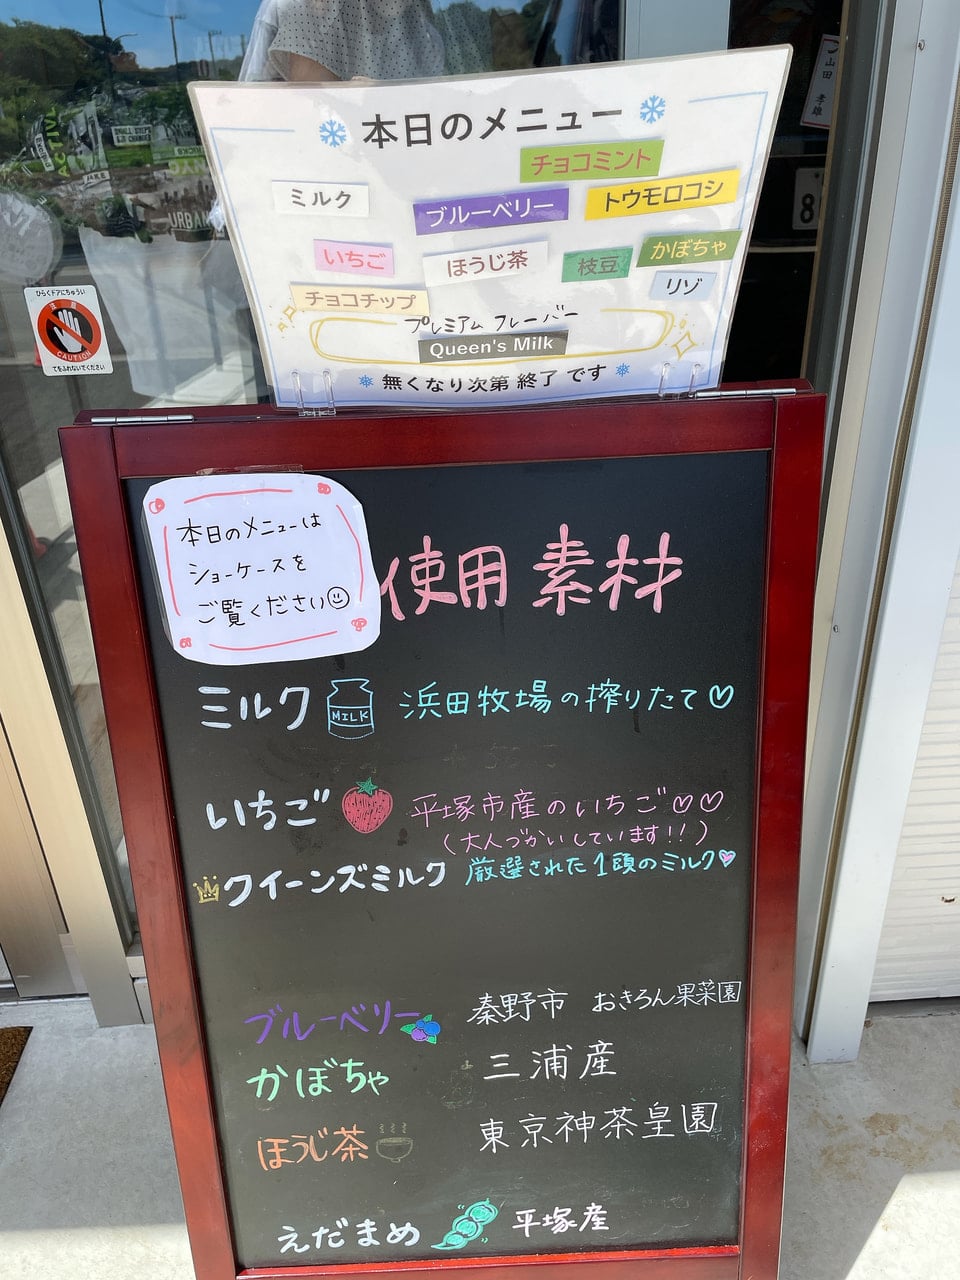 本日のメニュー
チョコミント
ミルク
ブルーベリー
トウモロコシ
いちご
ほうじ茶
枝豆
かぼちゃ
リゾ
チョコチップ
プレミアム フレーバー
Queen's Milk
無くなり次第 終了 です
山田 孝雄
8
ひらくドアにちゅうい
注意
CAUTION
てをふれないでください
URBAN
本日のメニューは
ショーケースを
ご覧ください
使用素材
ミルク MILK 浜田牧場の搾りたて♡
いちご 平塚市産のいちご♡♡
(大人づかいしています!!)
クイーンズミルク 厳選された1頭のミルク♡
ブルーベリー 秦野市 おきろん果菜園
かぼちゃ 三浦産
ほうじ茶 東京神茶皇園
えだまめ 平塚産